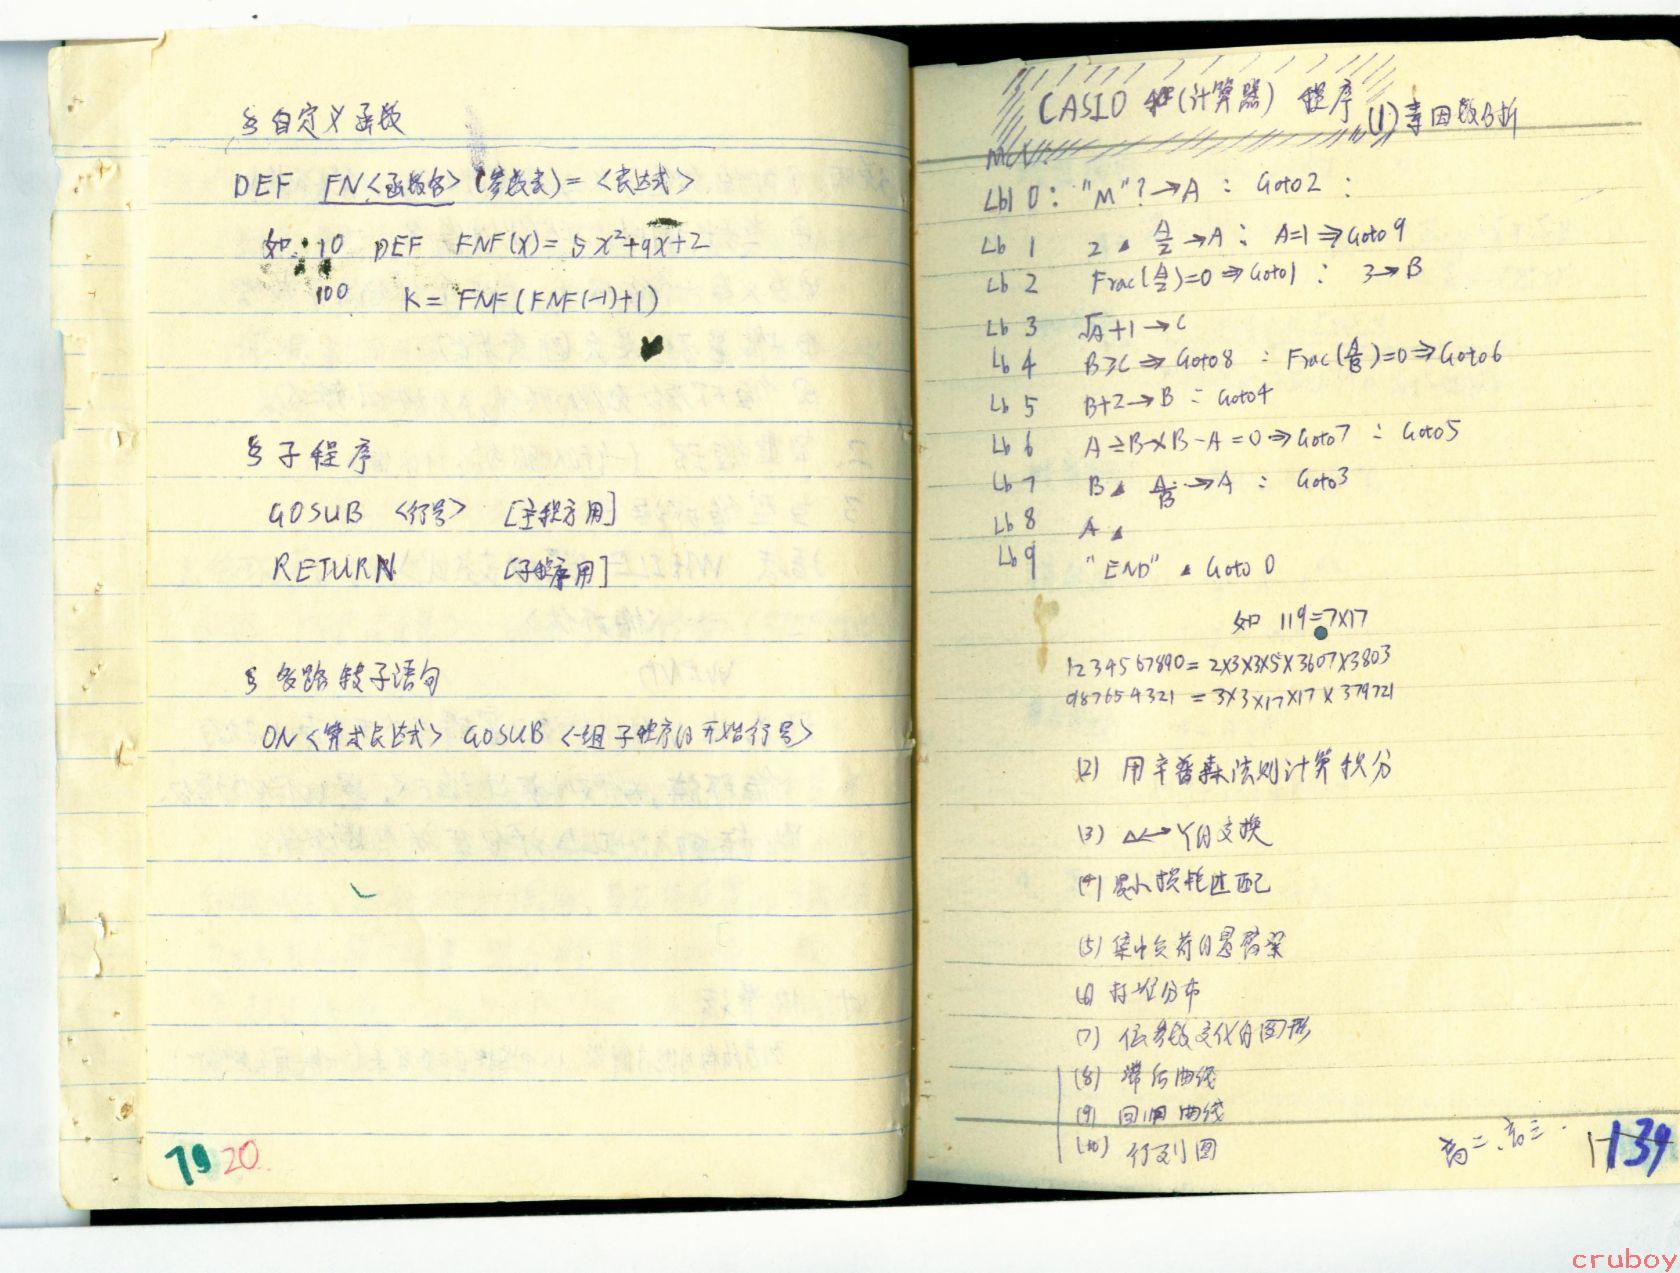 § 自定义函数
DEF FN<函数名>(参数表)=<表达式>
如: 10 DEF FNF(X)= 5X²+9X+2
100 K= FNF(FNF(-1)+1)
§ 子程序
GOSUB <行号> [主程序用]
RETURN [子程序用]
§ 多路转子语句
ON<算术表达式> GOSUB <一组子程序的开始行号>
19 20
CASIO (计算器) 程序 (1)素因数分析
MCl
Lbl 0: "M"?→A : Goto2 :
Lb 1 2 ◢ A/2 →A : A=1⇒Goto9
Lb 2 Frac(A/2)=0⇒Goto1 : 3→B
Lb 3 √A+1→C
Lb 4 B≥C⇒Goto8 : Frac(A/B)=0⇒Goto6
Lb 5 B+2→B : Goto4
Lb 6 A÷B×B-A=0⇒Goto7 : Goto5
Lb 7 B◢ A/B→A : Goto3
Lb 8 A◢
Lb 9 "END" ◢ Goto 0
如 119=7×17
1234567890= 2×3×3×5×3607×3803
987654321 = 3×3×17×17×379721
(2) 用辛普森法则计算积分
(3) △↔Y的交换
(4) 最小损耗匹配
(5) 集中负荷的悬臂梁
(6) 分布
(7) 依参数变化的图形
(8) 滞后曲线
(9) 回归曲线
(10) 行列图
高二.高三.
139
cruboy